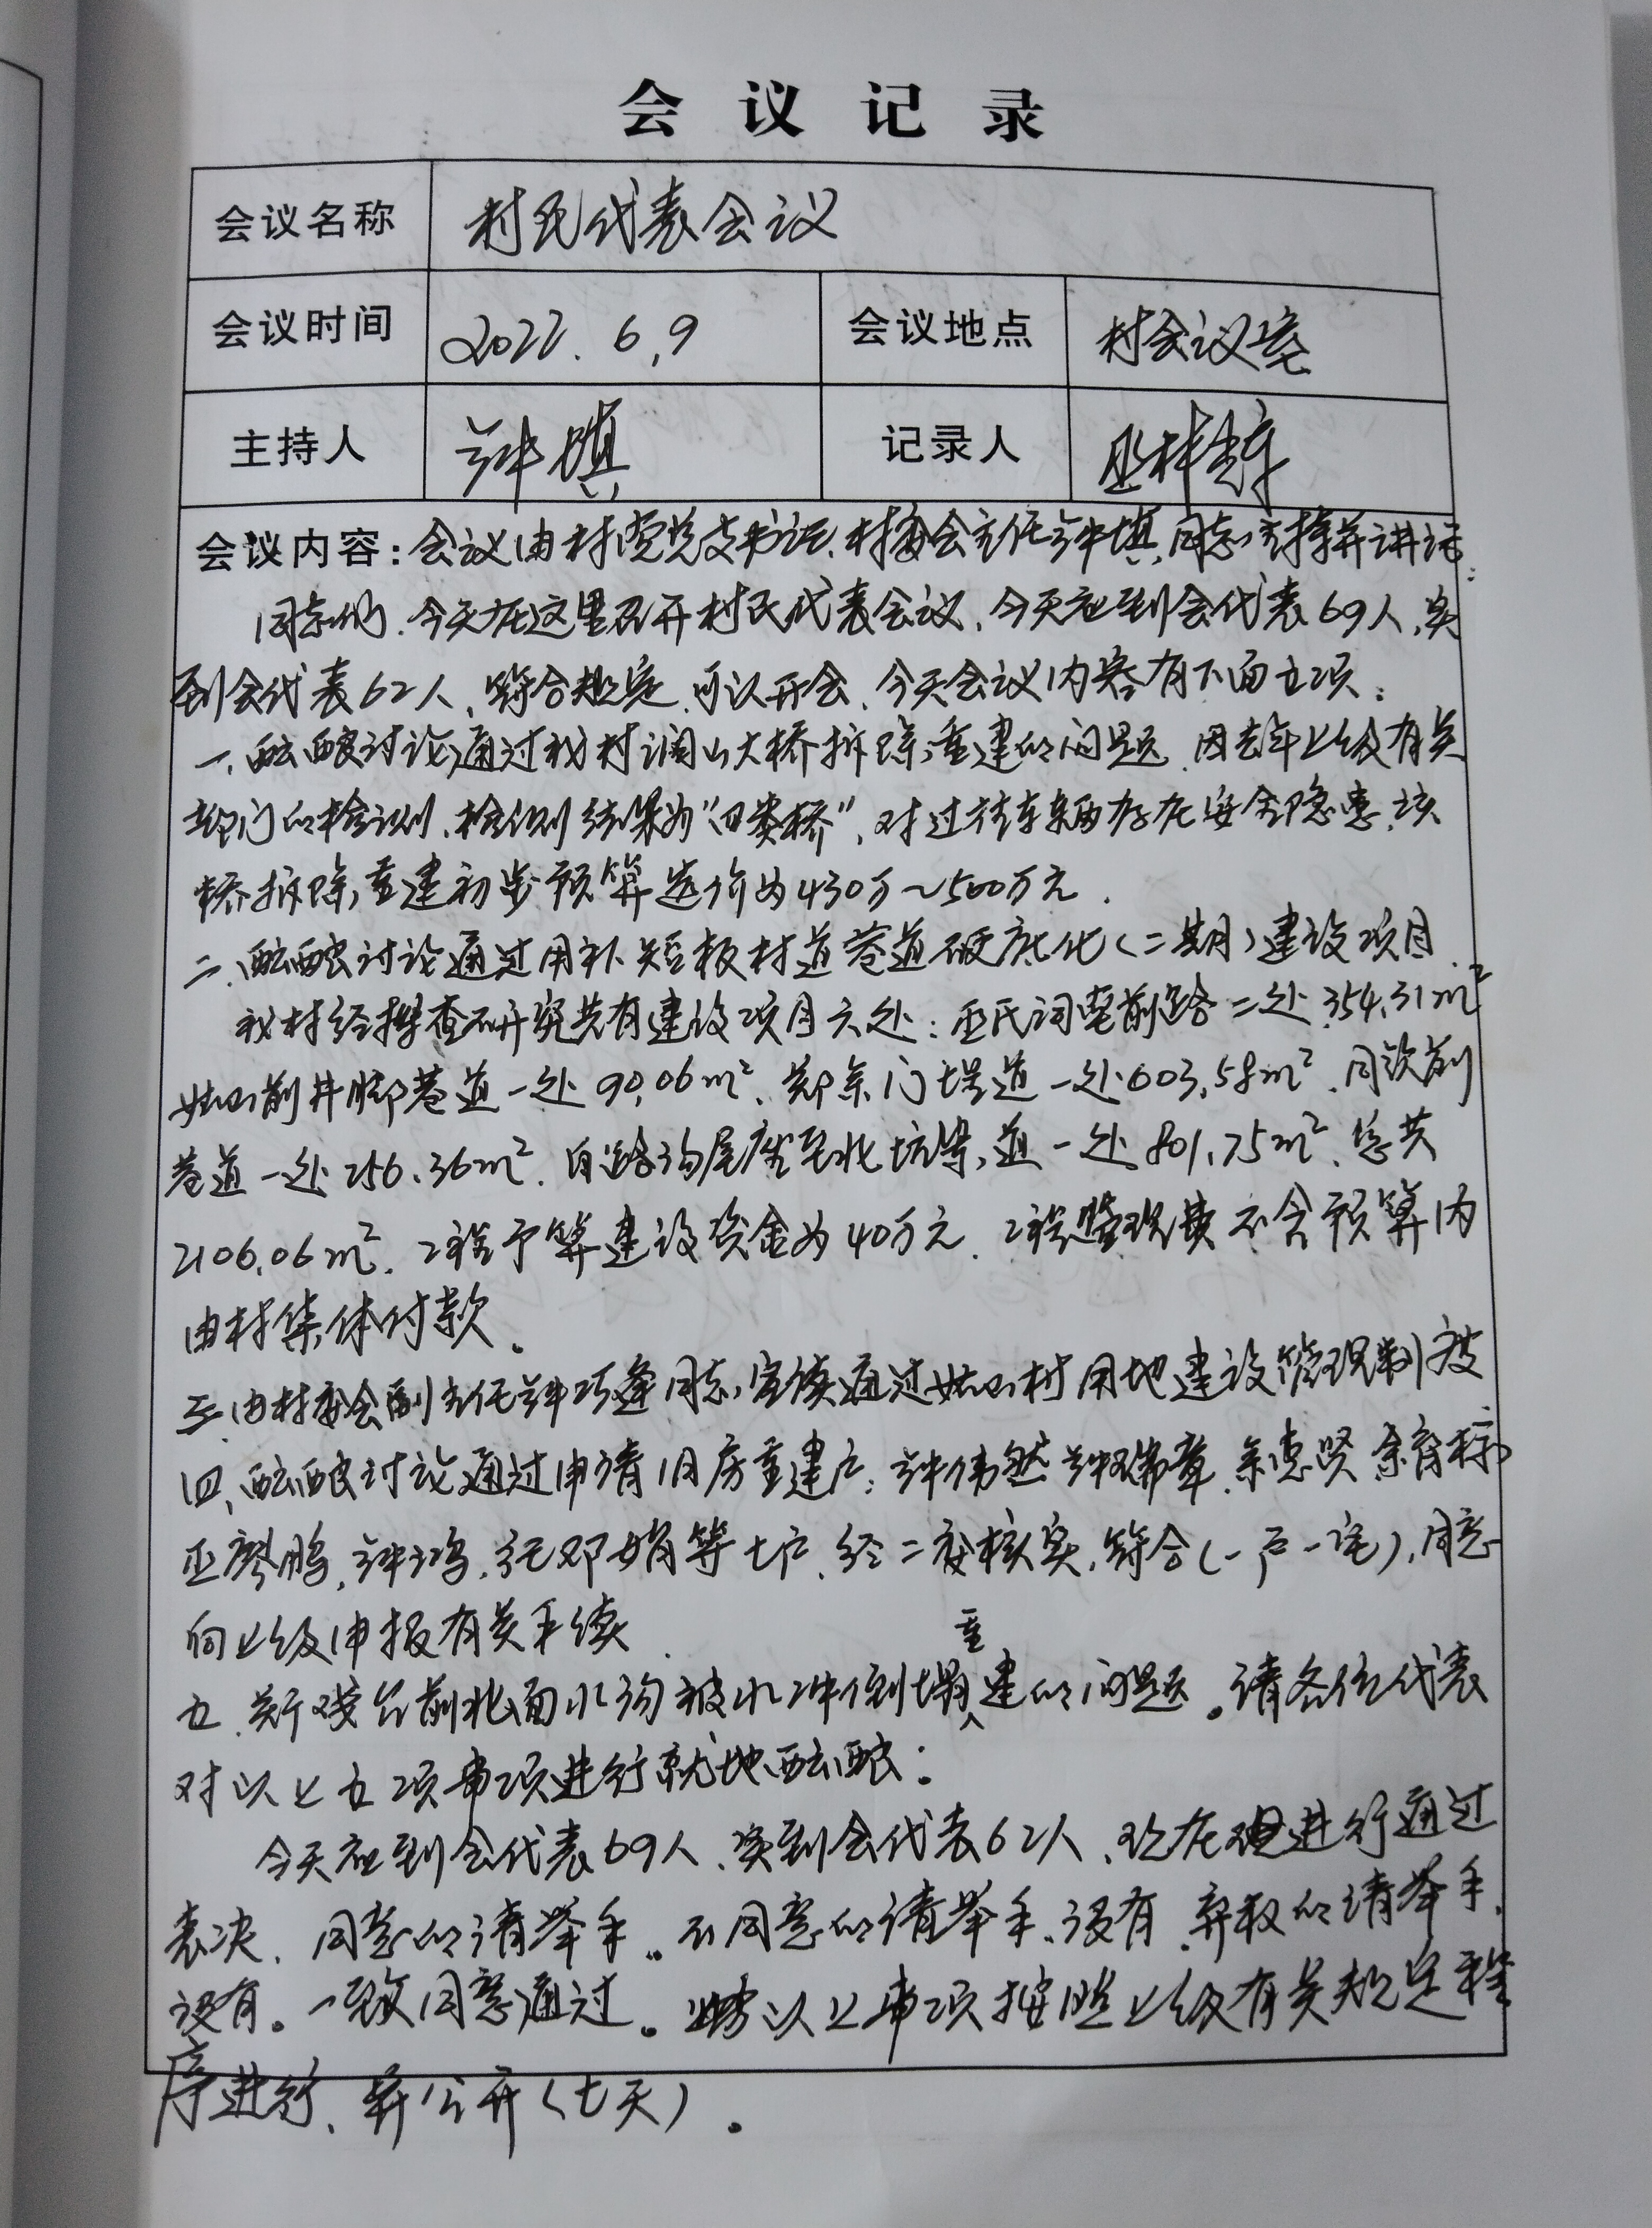 会议记录
会议名称 村民代表会议
会议时间 2022.6.9 会议地点 村会议室
主持人 钟填 记录人 巫林
会议内容：会议由村党总支书记、村委会主任钟填同志主持并讲话：
同志们，今天在这里召开村民代表会议，今天应到会代表69人，实
到会代表62人，符合规定，可以开会，今天会议内容有下面五项：
一、酝酿讨论通过我村润山大桥拆除重建的问题，因去年上级有关
部门的检测，检测结果为“四类桥”，对过往车辆存在安全隐患，该
桥拆除重建初步预算造价为430万～500万元．
二、酝酿讨论通过用补短板村道巷道硬底化（二期）建设项目．
我村经摸查研究共有建设项目六处：巫氏祠堂前路二处354.31m²
前井脚巷道一处90.06m²、郑余门埕道一处603.58m²、前
巷道一处256.36m²、自路沟尾至北坑道一处801.75m²、总共
2106.06m²，工程予算建设资金为40万元，工程监理费不含预算内
由村集体付款。
三、由村委会副主任钟巧逢同志，宣读通过村用地建设管理制度
四、酝酿讨论通过申请旧房重建户：钟伟然、钟瑞章、余惠贤、余育
巫廖鹏，钟鸿，邓娟等七户，经二度核实，符合（一户一宅），同意
向上级申报有关手续．
五、新戏台前北面水沟被水冲倒塌重建的问题。请各位代表
对以上五项事项进行就地酝酿：
今天应到会代表69人，实到会代表62人，现在进行通过
表决，同意的请举手。不同意的请举手，没有，弃权的请举手，
没有。一致同意通过。将以上事项按照上级有关规定程
序进行，并公开（七天）。